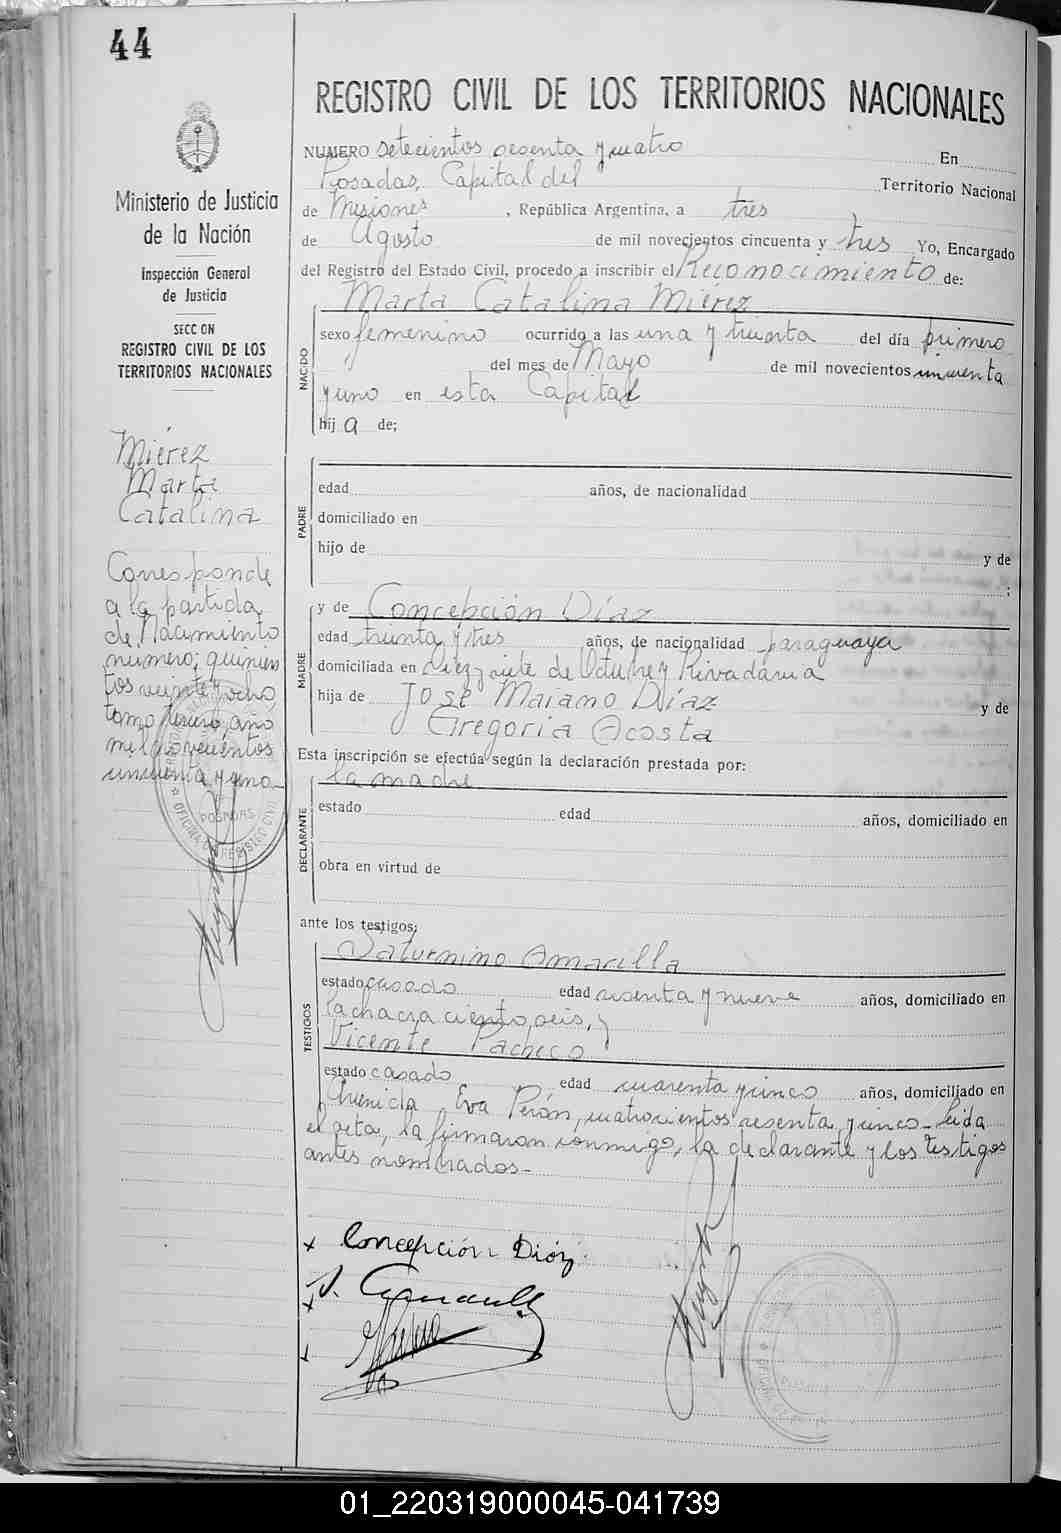 44
REGISTRO CIVIL DE LOS TERRITORIOS NACIONALES
Ministerio de Justicia
de la Nación
Inspección General
de Justicia
SECC ON
REGISTRO CIVIL DE LOS
TERRITORIOS NACIONALES
Miérez
Marta
Catalina
Corresponde
a la partida
de Nacimiento
número; quinien
tos veinte y ocho,
tomo tercero, año
mil novecientos
cincuenta y uno
POSADAS
OFICINA DE REGISTRO CIVIL
NUMERO Setecientos sesenta y cuatro En
Posadas, Capital del Territorio Nacional
de Misiones, República Argentina, a tres
de Agosto de mil novecientos cincuenta y tres Yo, Encargado
del Registro del Estado Civil, procedo a inscribir el Reconocimiento de:
Marta Catalina Miérez
NACIDO
sexo femenino ocurrido a las una y treinta del día primero
del mes de Mayo de mil novecientos cincuenta
y uno en esta Capital
hija de;
PADRE
edad años, de nacionalidad
domiciliado en
hijo de y de
;
MADRE
y de Concepción Díaz
edad treinta y tres años, de nacionalidad paraguaya
domiciliada en Diez y siete de Octubre y Rivadavia
hija de José Mariano Díaz y de
Gregoria Acosta
Esta inscripción se efectúa según la declaración prestada por:
la madre
DECLARANTE
estado edad años, domiciliado en
obra en virtud de
ante los testigos;
TESTIGOS
Saturnino Amarilla
estado casado edad sesenta y nueve años, domiciliado en
la chacra ciento seis, y
Vicente Pacheco
estado casado edad cuarenta y cinco años, domiciliado en
Avenida Eva Perón, cuatrocientos sesenta y cinco - Leida
el acta, la firmaron conmigo, la declarante y los testigos
antes nombrados -
x Concepción Diáz
01_220319000045-041739